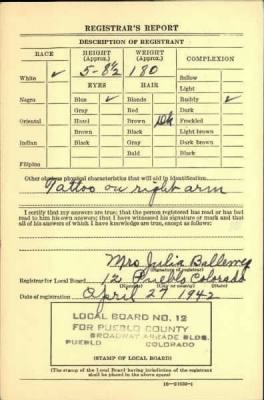 REGISTRAR'S REPORT
DESCRIPTION OF REGISTRANT
RACE HEIGHT (Approx.) WEIGHT (Approx.) COMPLEXION
5-8½ 180
White ✓ EYES HAIR Sallow
Light
Negro Blue ✓ Blonde Ruddy ✓
Gray Red Dark
Oriental Hazel Brown Dk Freckled
Brown Black Light brown
Indian Black Gray Dark brown
Bald Black
Filipino
Other obvious physical characteristics that will aid in identification
Tattoo on right arm
I certify that my answers are true; that the person registered has read or has had
read to him his own answers; that I have witnessed his signature or mark and that
all of his answers of which I have knowledge are true, except as follows:
Mrs Julia Ballweg
(Signature of registrar)
Registrar for Local Board 12 Pueblo Colorado
(Number) (City or county) (State)
Date of registration April 27 1942
LOCAL BOARD NO. 12
FOR PUEBLO COUNTY
BROADWAY ARCADE BLDG.
PUEBLO COLORADO
(STAMP OF LOCAL BOARD)
(The stamp of the Local Board having jurisdiction of the registrant
shall be placed in the above space)
16—21630-1